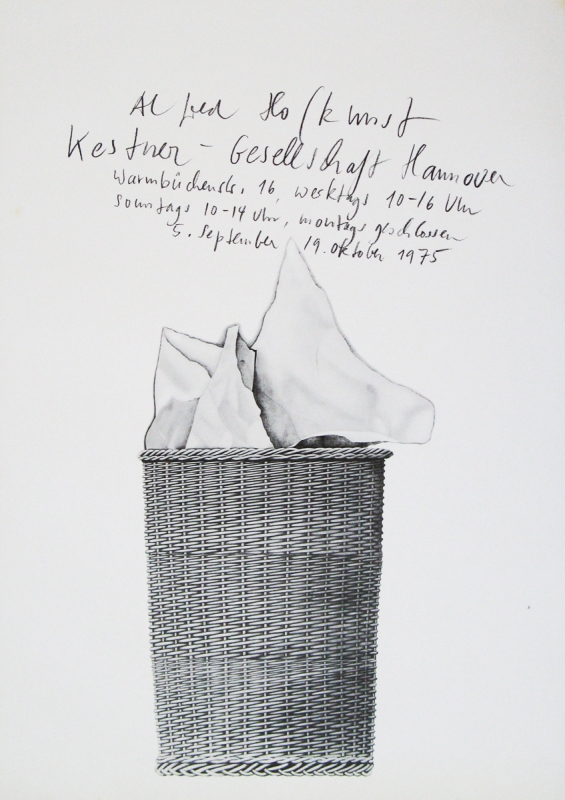 Alfred Hofkunst
Kestner-Gesellschaft Hannover
Warmbüchenstr. 16, werktags 10-16 Uhr
sonntags 10-14 Uhr, montags geschlossen
5. september 19. oktober 1975